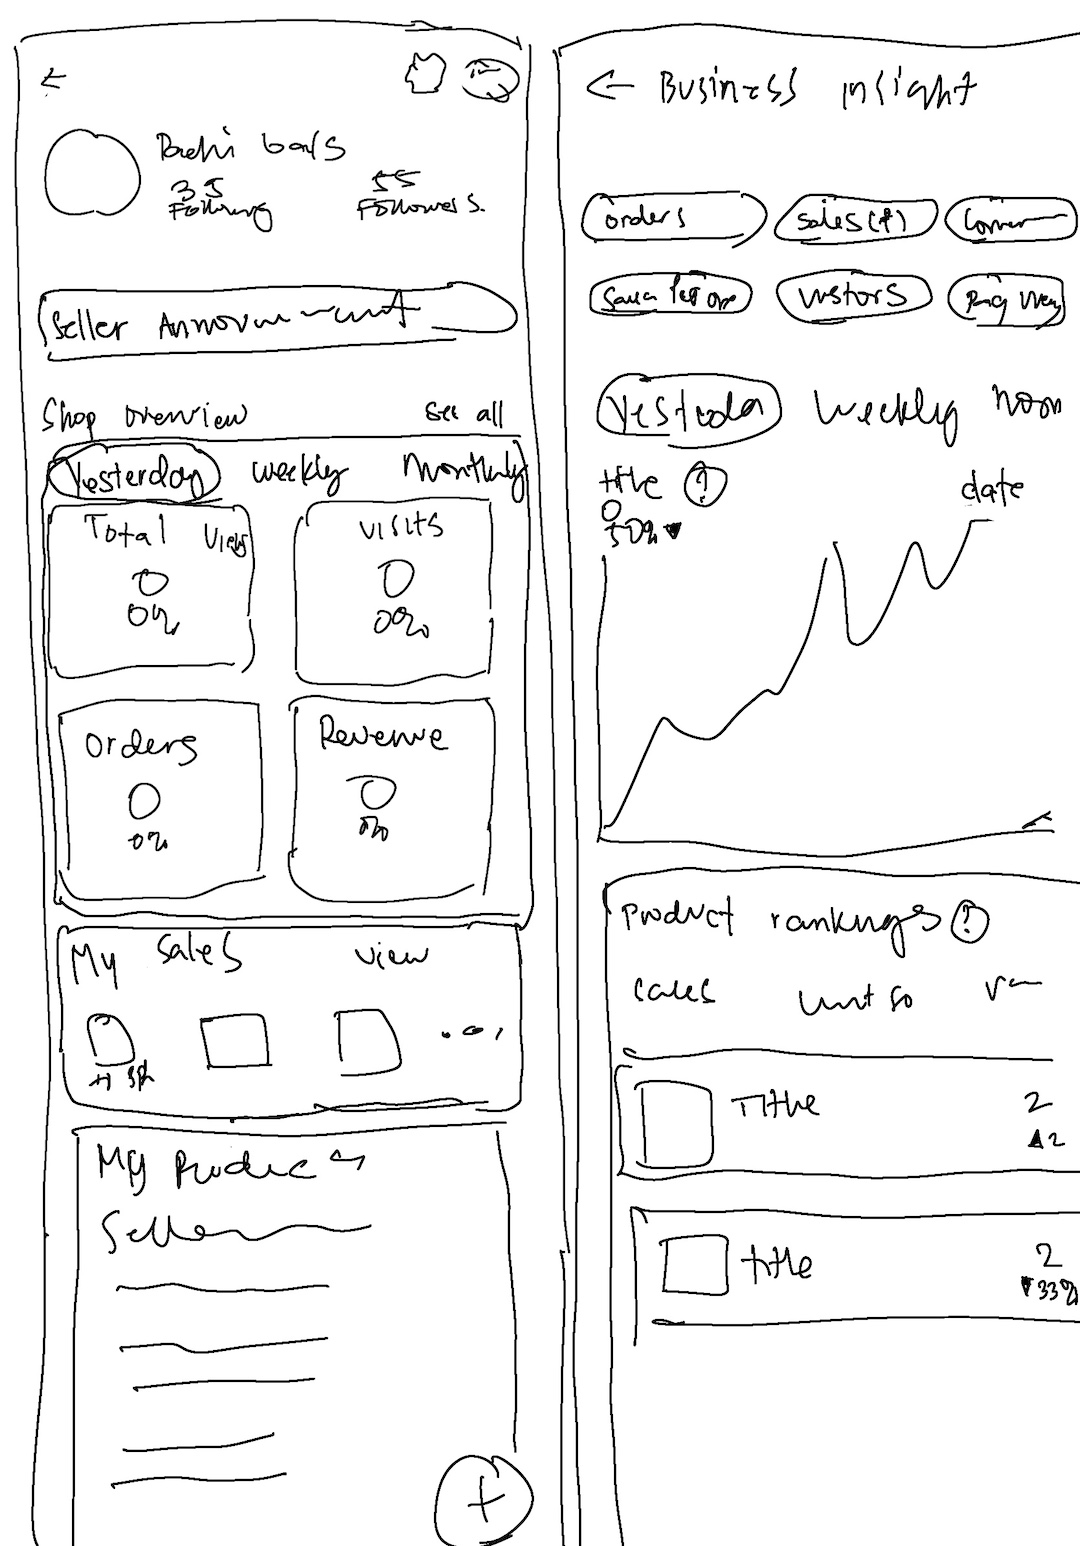 35
Following
55
Followers.
Seller Announcement
Shop overview
see all
Yesterday weekly Monthly
Total Views
0
0%
visits
0
00%
orders
0
0%
Revenue
0
0%
My sales view
My Product
Seller
+
← Business insight
orders
sales(₱)
visitors
Yesterda weekly
title ?
0
50% ▼
date
product rankings ?
sales unit so
Title 2
▲2
title 2
▼33%